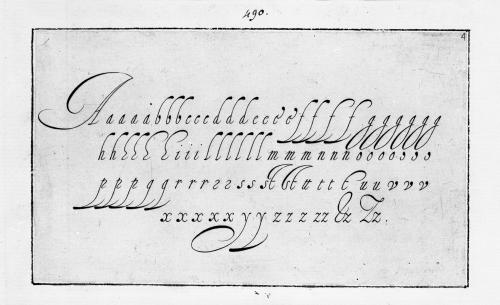 490.
4
Aaaaabbbcccdddeeeeffffggggggg
hhhhhiiillllllmmmnnnooooooo
ppppqqrrrrssssststtttuuvvv
xxxxxyyzzzzz&z Tz.